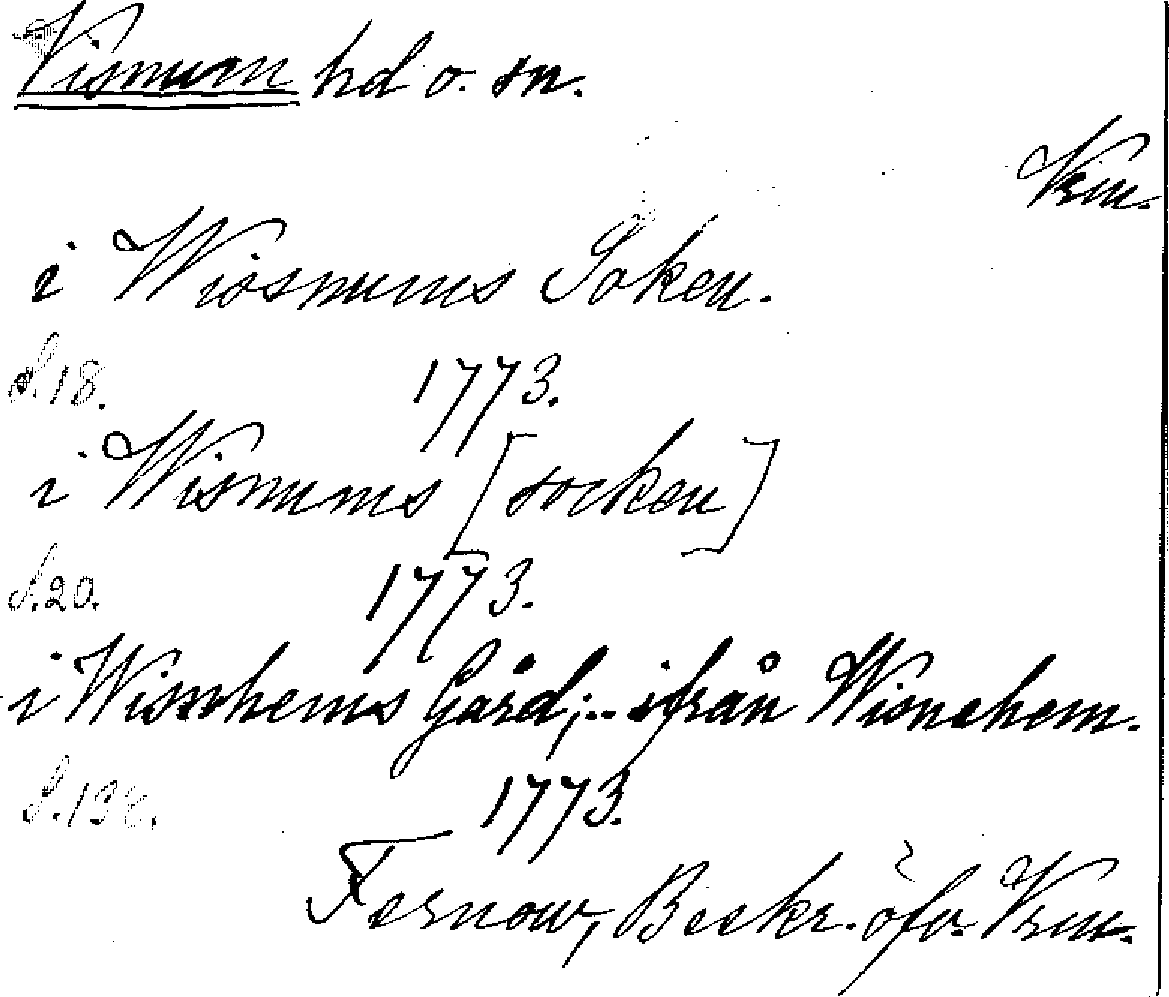 Visnum hd o. sn.
Vrm.
i Wisnums Soken.
S. 18. 1773.
i Wisnums [socken]
S. 20. 1773.
i Gård; .. ifrån Wisnehem.
1773.
Fernow, Beskr. öfv. Vrm.